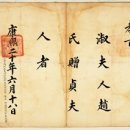 教旨
淑夫人趙
氏贈貞夫
人者
康熙二十年六月十八日